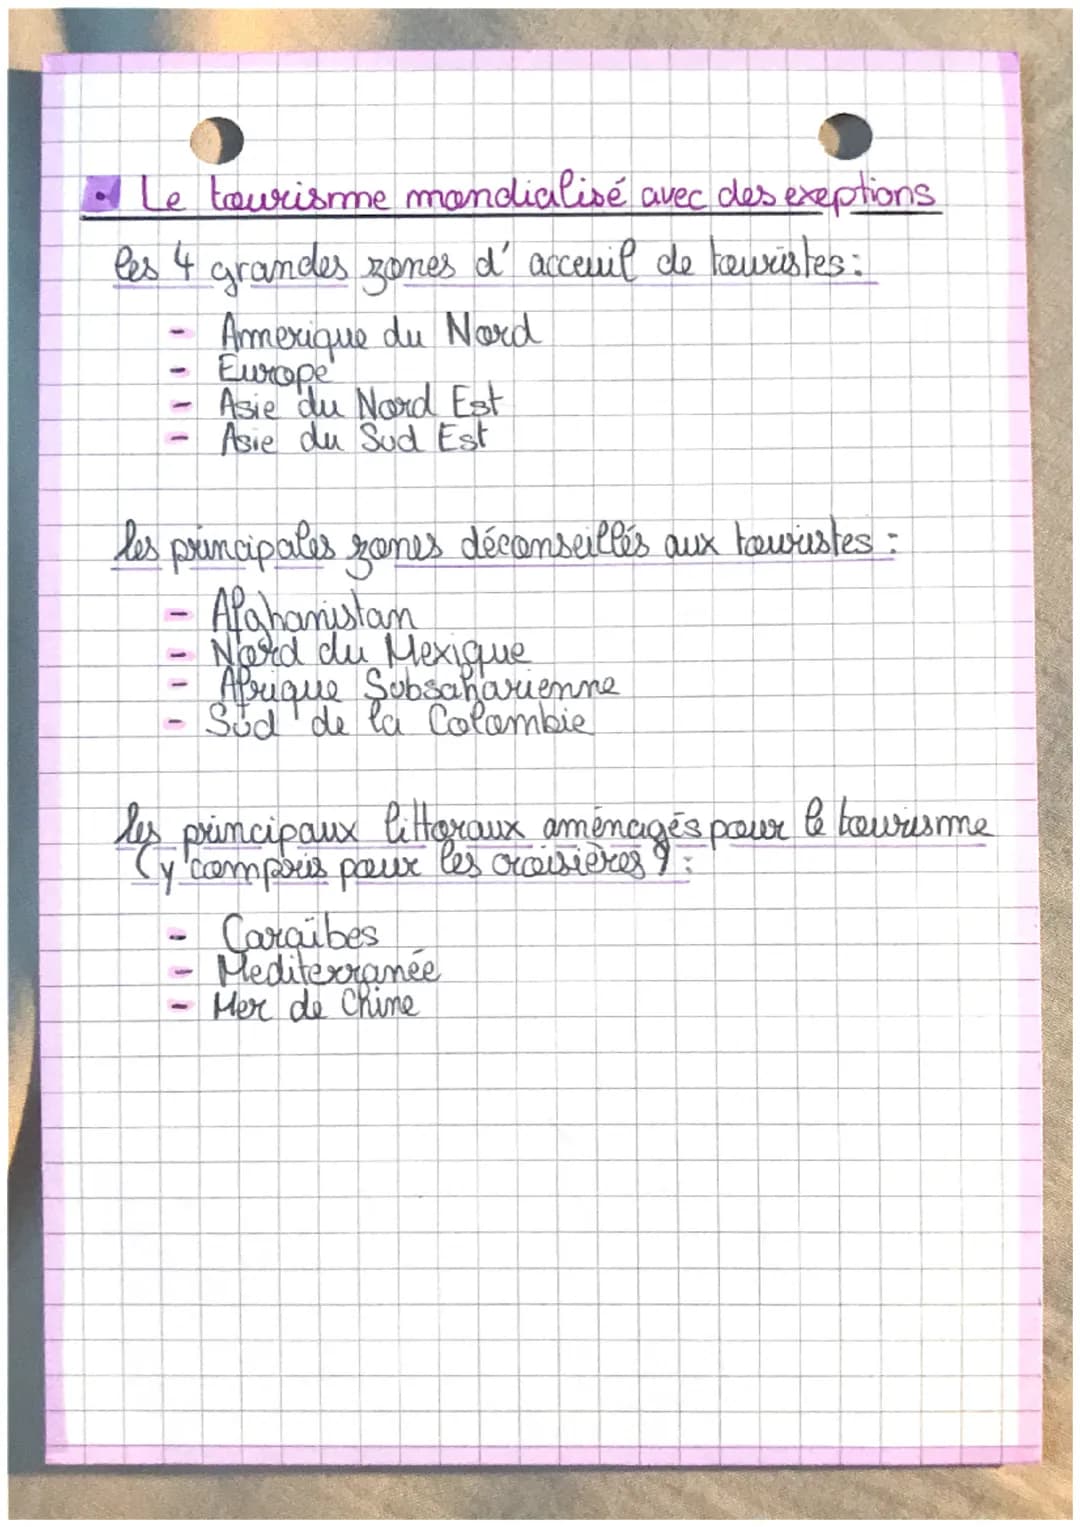 Le tourisme mondialisé avec des exeptions
les 4 grandes zones d' acceuil de touristes :
- Amerique du Nord
- Europe
- Asie du Nord Est
- Asie du Sud Est
les principales zones déconseillés aux touristes :
- Afghanistan
- Nord du Mexique
- Afrique Subsaharienne
- Sud de la Colombie
les principaux littoraux aménagés pour le tourisme
(y compris pour les croisières) :
- Caraïbes
- Mediterranée
- Mer de Chine